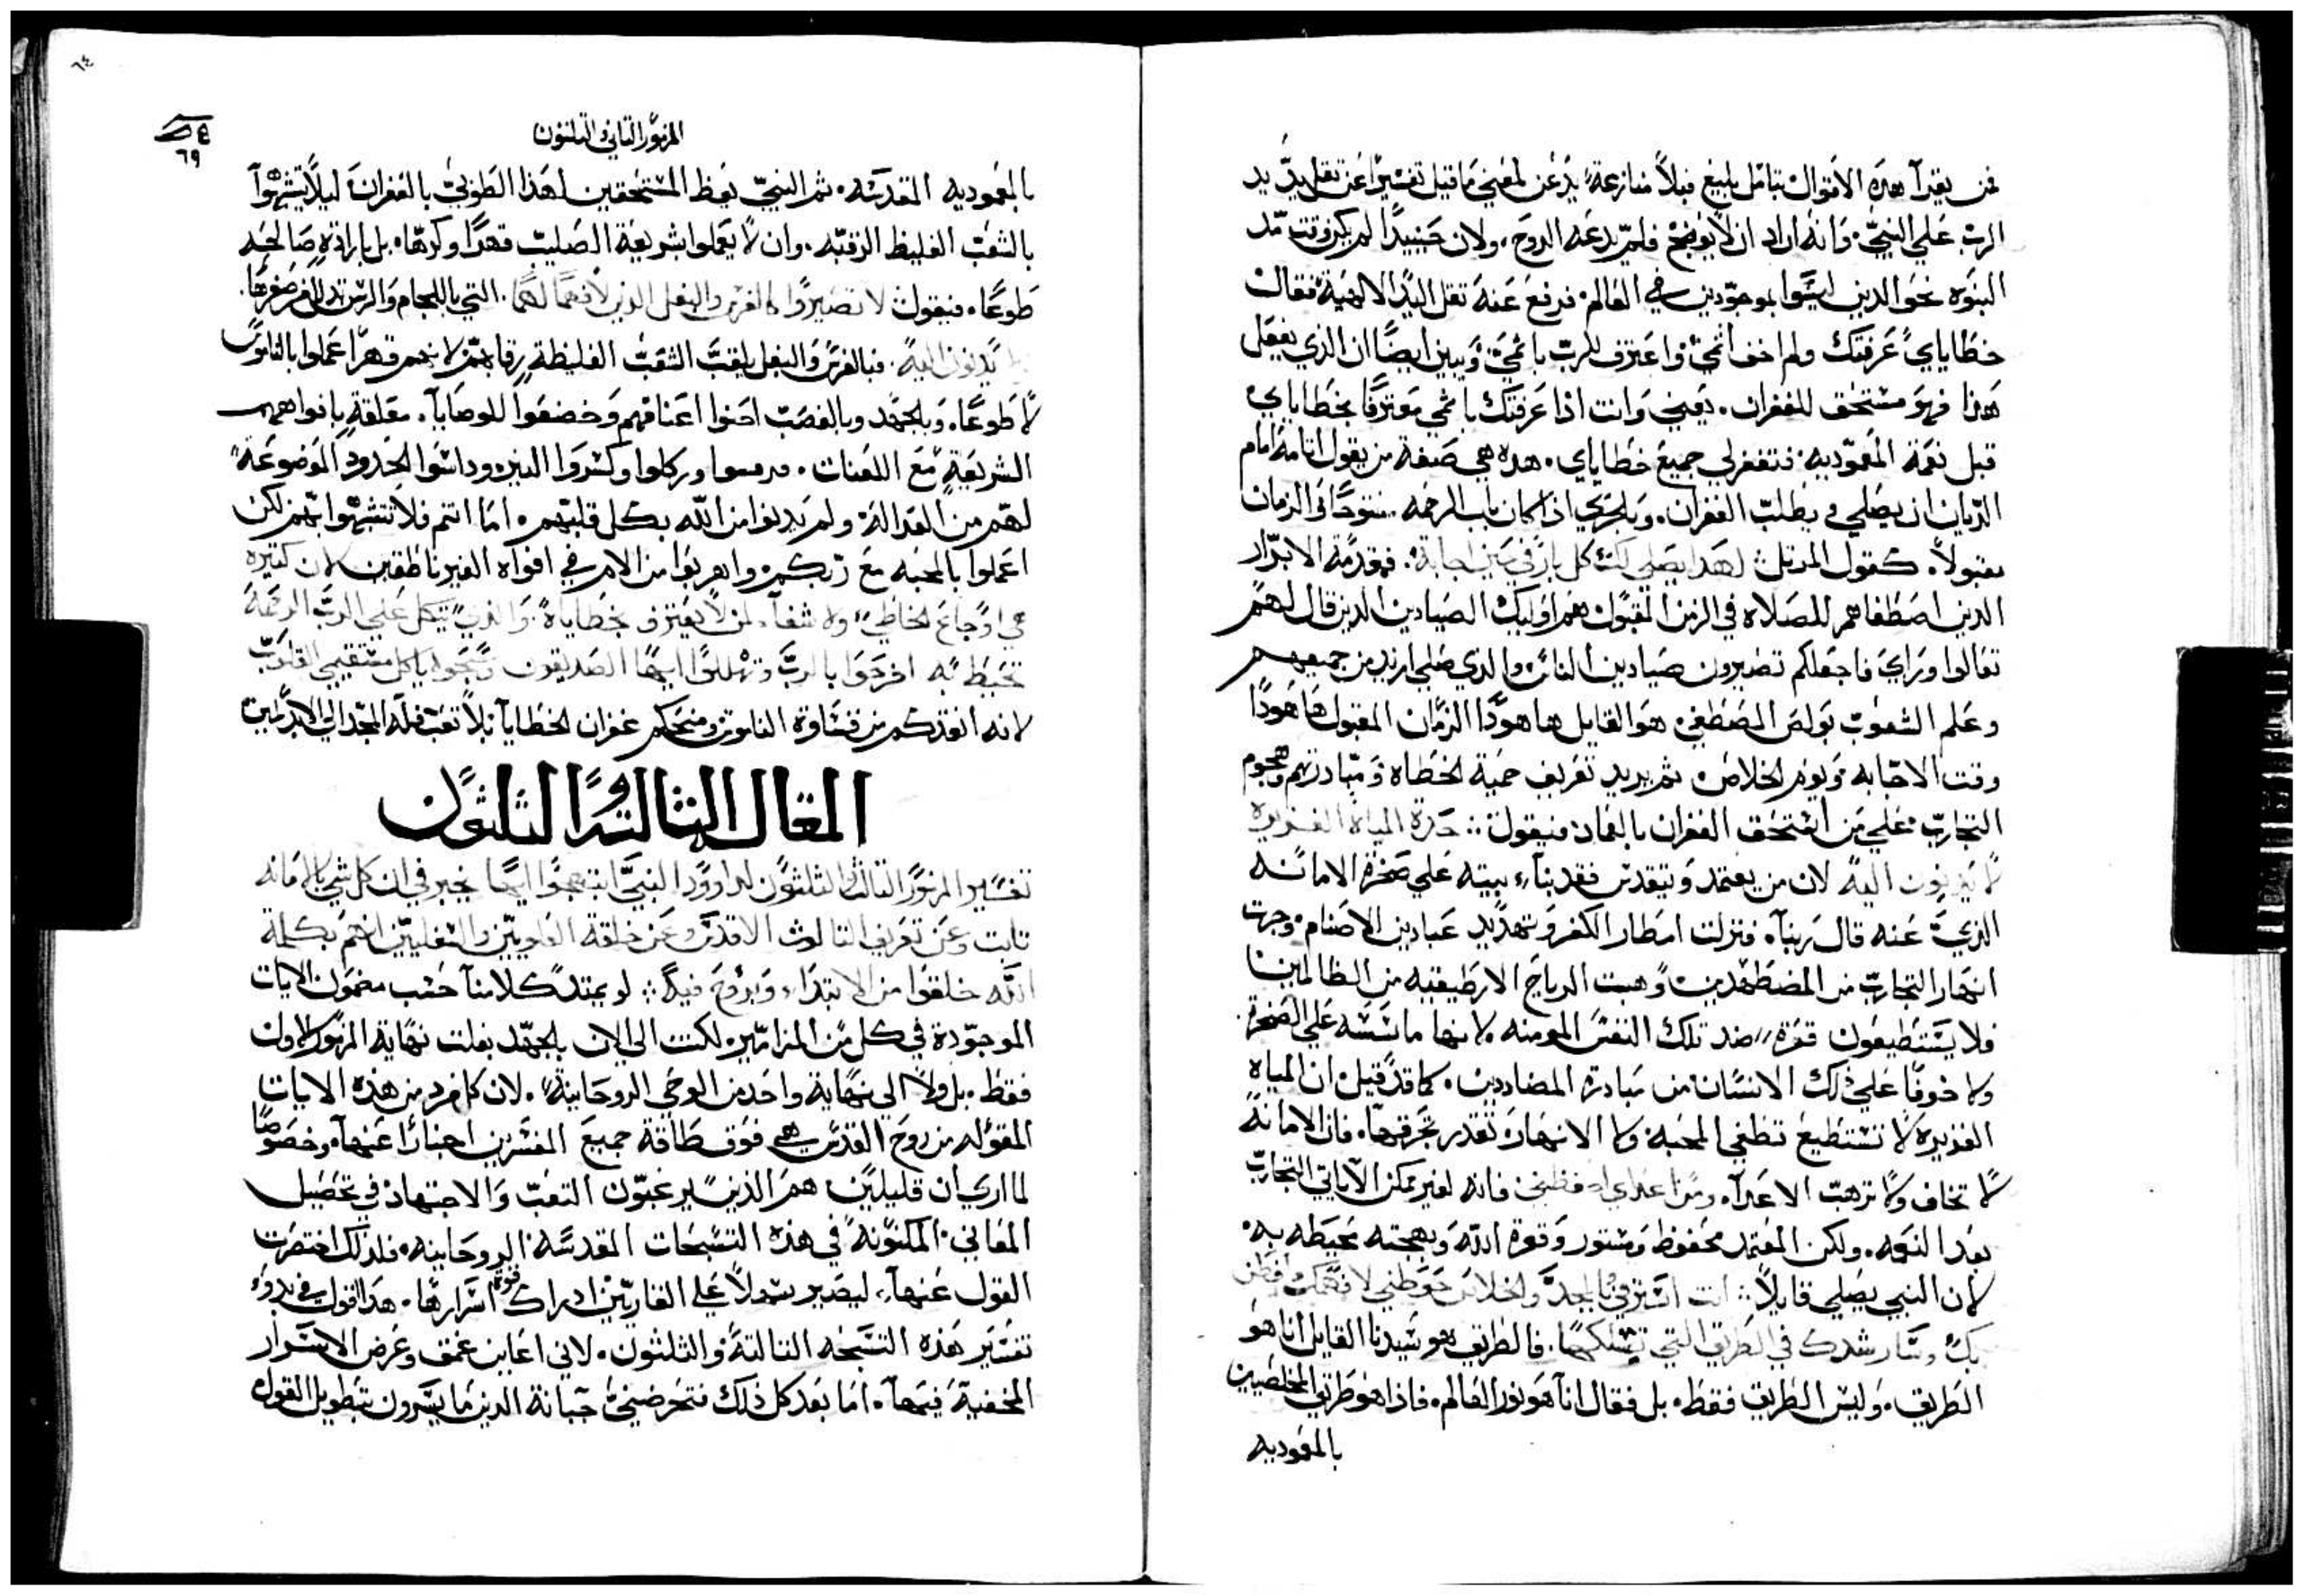 فمن يقرأ هذه الاقوال بتأمل بليغ فبلا منازعة يذعن لمعنى ما قيل تفسيرا عن ثقل يد
الرب على النبي. وانه اراد ان لا يوضح فلم يدعه الروح. ولان حينيذا لم يكن وقت مد
النبوه نحو الذين ليسوا بموجودين في العالم. فرفع عنه ثقل اليد الالهية فقال
خطاياي عرفتك ولم اخف اثمي واعترف للرب باثمي. ويبين ايضا ان الذي يفعل
هذا فهو مستحق للغفران. يعني وانت اذا عرفتك باثمي معترفا بخطاياي
قبل نعمة المعموديه فتغفر لي جميع خطاياي. هذه هي صفة من يقول انا مه امام
الديان ان يصلي ويطلب الغفران. وبالحري اذا كان باب الرحمه مفتوحا والزمان
مقبولا. كقول المرتل: لهذا يصلي لك كل بار في حين اجابة. فمقدمة الابرار
الذين اصطفاهم للصلاه في الزمن المقبول هم اوليك الصيادين الذين قال لهم
تعالوا وراي فاجعلكم تصيرون صيادين الناس والذي صلى ازيد من جميعهم
وعلم الشعوب بولص المصطفى هو القايل ها هوذا الزمان المقبول ها هوذا
وقت الاجابه ويوم الخلاص. ثم يريد تعريف حمية الخطاه ومبادرتهم وهجوم
التجارب على من استحق الغفران بالعماد فيقول: حدة المياه الغزيره
لا يدنون اليه لان من يعتمد ويتقدس فقد بناء بيته على صخرة الامانه
الذي عنه قال ربنا. فنزلت امطار الكفر وتهديد عبادين الاصنام. وجرت
انهار التجارب من المضطهدين وهبت الرياح الارطيقيه من الظالمين
فلا يستطيعون قوة ضد تلك النفس المومنه لانها ماسسه على الصخرة
ولا خوفا على ذلك الانسان من مبادرة المضاددين. كما قد قيل ان المياه
الغزيرة لا تستطيع تطفي المحبة ولا الانهار تقدر تغرقها. فان الامانة
لا تخاف ولا ترهب الاعدآ. ومن اعداي احفظني فانه لغير ممكن الا ياتي التجارب
بعد النعمه. ولكن المعتمد محفوظ ومستور وقوة الله وبهجته محيطه به.
لان النبي يصلي قايلا: انت استرني بالمجد والخلاص حوطني لافهمك افطن
بك وسارشدك في الطريق التي تسلكها. فالطريق هو سيدنا القايل انا هو
الطريق. وليس الطريق فقط. بل فقال انا هو نور العالم. فاذا هو طريق المخلصين
بالمعوديه
٦٤
٦٩
المزمور الثاني والثلثون
بالمعموديه المقدسه. ثم النبي يعظ المستحقين لهذا الطوبى بالغفران ليلا يتشبهوا
بالشعب الغليظ الرقبه. وان لا يعملوا بشريعة الصليب قهرا وكرها. بل بارادة صالحه
طوعا. فيقول لا تصيروا كالفرس والبغل الذين لا فهم لهما. التي باللجام والرسن
يدنون اليه. فبالفرس والبغل يلقب الشعب الغليظة رقابهم لانهم قهرا عملوا بالناموس
لا طوعا. وبالجهد وبالغصب احنوا اعناقهم وخضعوا للوصايا. معلقة بافواههم
الشريعة مع اللعنات. فرفسوا وركلوا وكسروا النير وداسوا الحدود الموضوعة
لهم من العدالة ولم يدنوا من الله بكل قلبهم. اما انتم فلا تتشبهوا بهم لكن
اعملوا بالمحبه مع ربكم واهربوا من الامر في افواه الغير ناطقين لان كثيره
هي اوجاع الخاطي ولا شفآء لمن لا يعترف بخطاياه. والذي يتكل على الرب الرحمة
تحيط به افرحوا بالرب وتهللوا ايها الصديقون وسبحوا يا كل مستقيمي القلوب
لانه انقذكم من قساوة الناموس ومنحكم غفران الخطايا بلا تعب فله المجد الى الابد امين
المقال الثالث والثلثون
تفسير المزمور الثالث والثلثون لداوود النبي ابتهجوا ايها يخبر في ان كل شي بالامانه
ثابت وعن تعريف الثالوث الاقدس وعن خلقة العلويين والسفليين انهم بكلمة
الله خلقوا من الابتداء وبروح فيه: لو يمتد كلامنا حسب مضمون الايات
الموجودة في كل من المزامير لكنت الى الان بالجهد بلغت نهاية المزمور الاول
فقط. بل ولا الى نهاية واحد من الوحي الروحانية. لان كل فرد من هذه الايات
المقوله من روح القدس هي فوق طاقة جميع المفسرين اخبارا عنها. وخصوصا
لما ارى ان قليلين هم الذين يرغبون التعب والاجتهاد في تحصيل
المعاني المكنونة في هذه التسبحات المقدسه الروحانيه. فلذلك اختصرت
القول عنها. ليصير سهلا على القاريين ادراك قوة اسرارها. هذا اقول في بدوء
تفسير هذه التسبحه الثالثة والثلثون. لاني اعاين عمق وعرض الاسرار
المخفية فيها. اما بعد كل ذلك فتحرضني خيانة الذين ما يسرون بتطويل القول